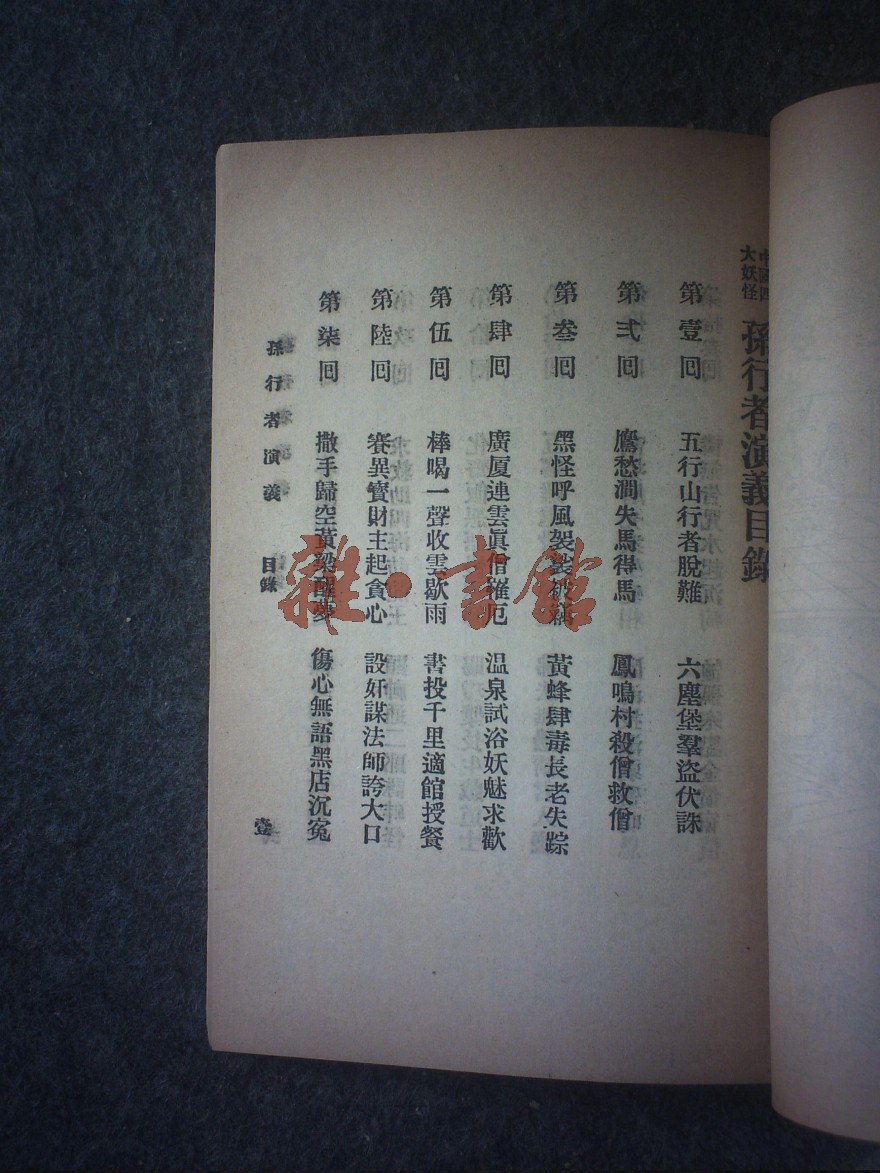 中國四大妖怪
孫行者演義目錄
第壹回 五行山行者脫難 六塵堡羣盜伏誅
第弍回 鷹愁澗失馬得馬 鳳鳴村殺僧救僧
第叁回 黑怪呼風袈裟 黃蜂肆毒長老失踪
第肆回 廣厦連雲眞僧罹厄 温泉試浴妖魅求歡
第伍回 棒喝一聲收雲歇雨 書投千里適館授餐
第陸回 賽異寳財主起貪心 設奸謀法師誇大口
第柒回 撒手歸空黃粱醒夢 傷心無語黑店沉冤
孫行者演義 目錄 壹
雜·書館